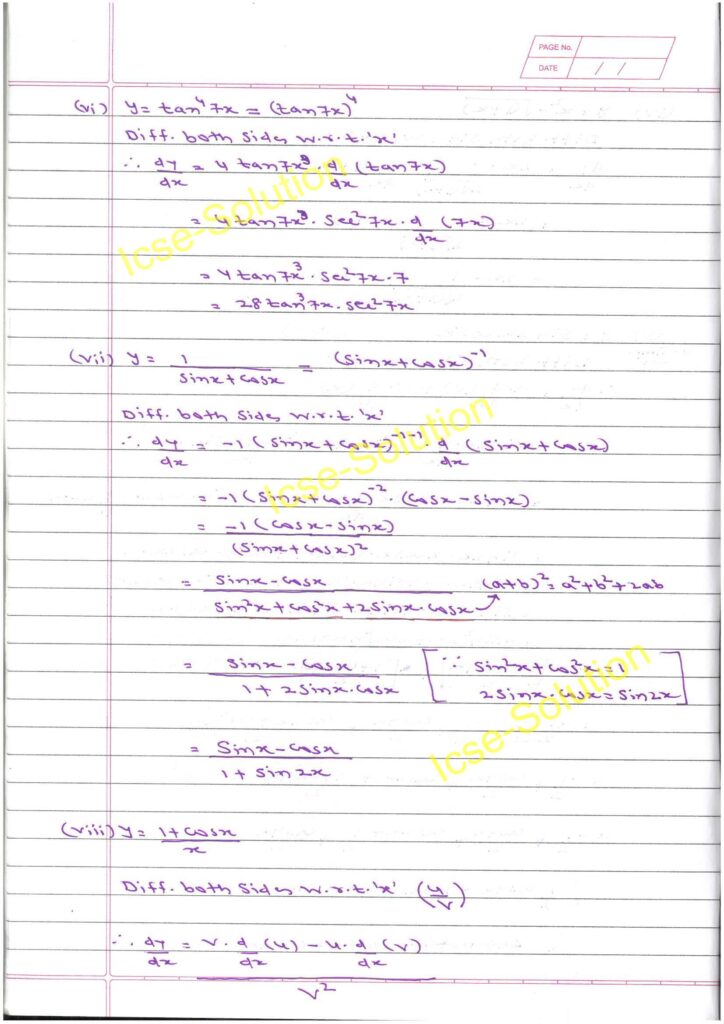 PAGE No.
DATE / /
(vi) y = tan⁴7x = (tan7x)⁴
Diff. both sides w.r.t. 'x'
∴ dy/dx = 4 tan7x³ · d/dx (tan7x)
= 4 tan7x³ · sec²7x · d/dx (7x)
= 4 tan7x³ · sec²7x · 7
= 28 tan³7x · sec²7x
(vii) y = 1/(sinx + cosx) = (sinx + cosx)⁻¹
Diff. both sides w.r.t. 'x'
∴ dy/dx = -1 (sinx + cosx)⁻¹⁻¹ · d/dx (sinx + cosx)
= -1 (sinx + cosx)⁻² · (cosx - sinx)
= -1 (cosx - sinx)/(sinx + cosx)²
= (sinx - cosx)/(sin²x + cos²x + 2sinx·cosx) (a+b)² = a² + b² + 2ab
= (sinx - cosx)/(1 + 2sinx·cosx) [∵ sin²x + cos²x = 1
2sinx·cosx = sin2x]
= (sinx - cosx)/(1 + sin2x)
(viii) y = (1 + cosx)/x
Diff. both sides w.r.t. 'x' (u/v)
∴ dy/dx = (v · d/dx (u) - u · d/dx (v))/v²
Icse-Solution
Icse-Solution
Icse-Solution